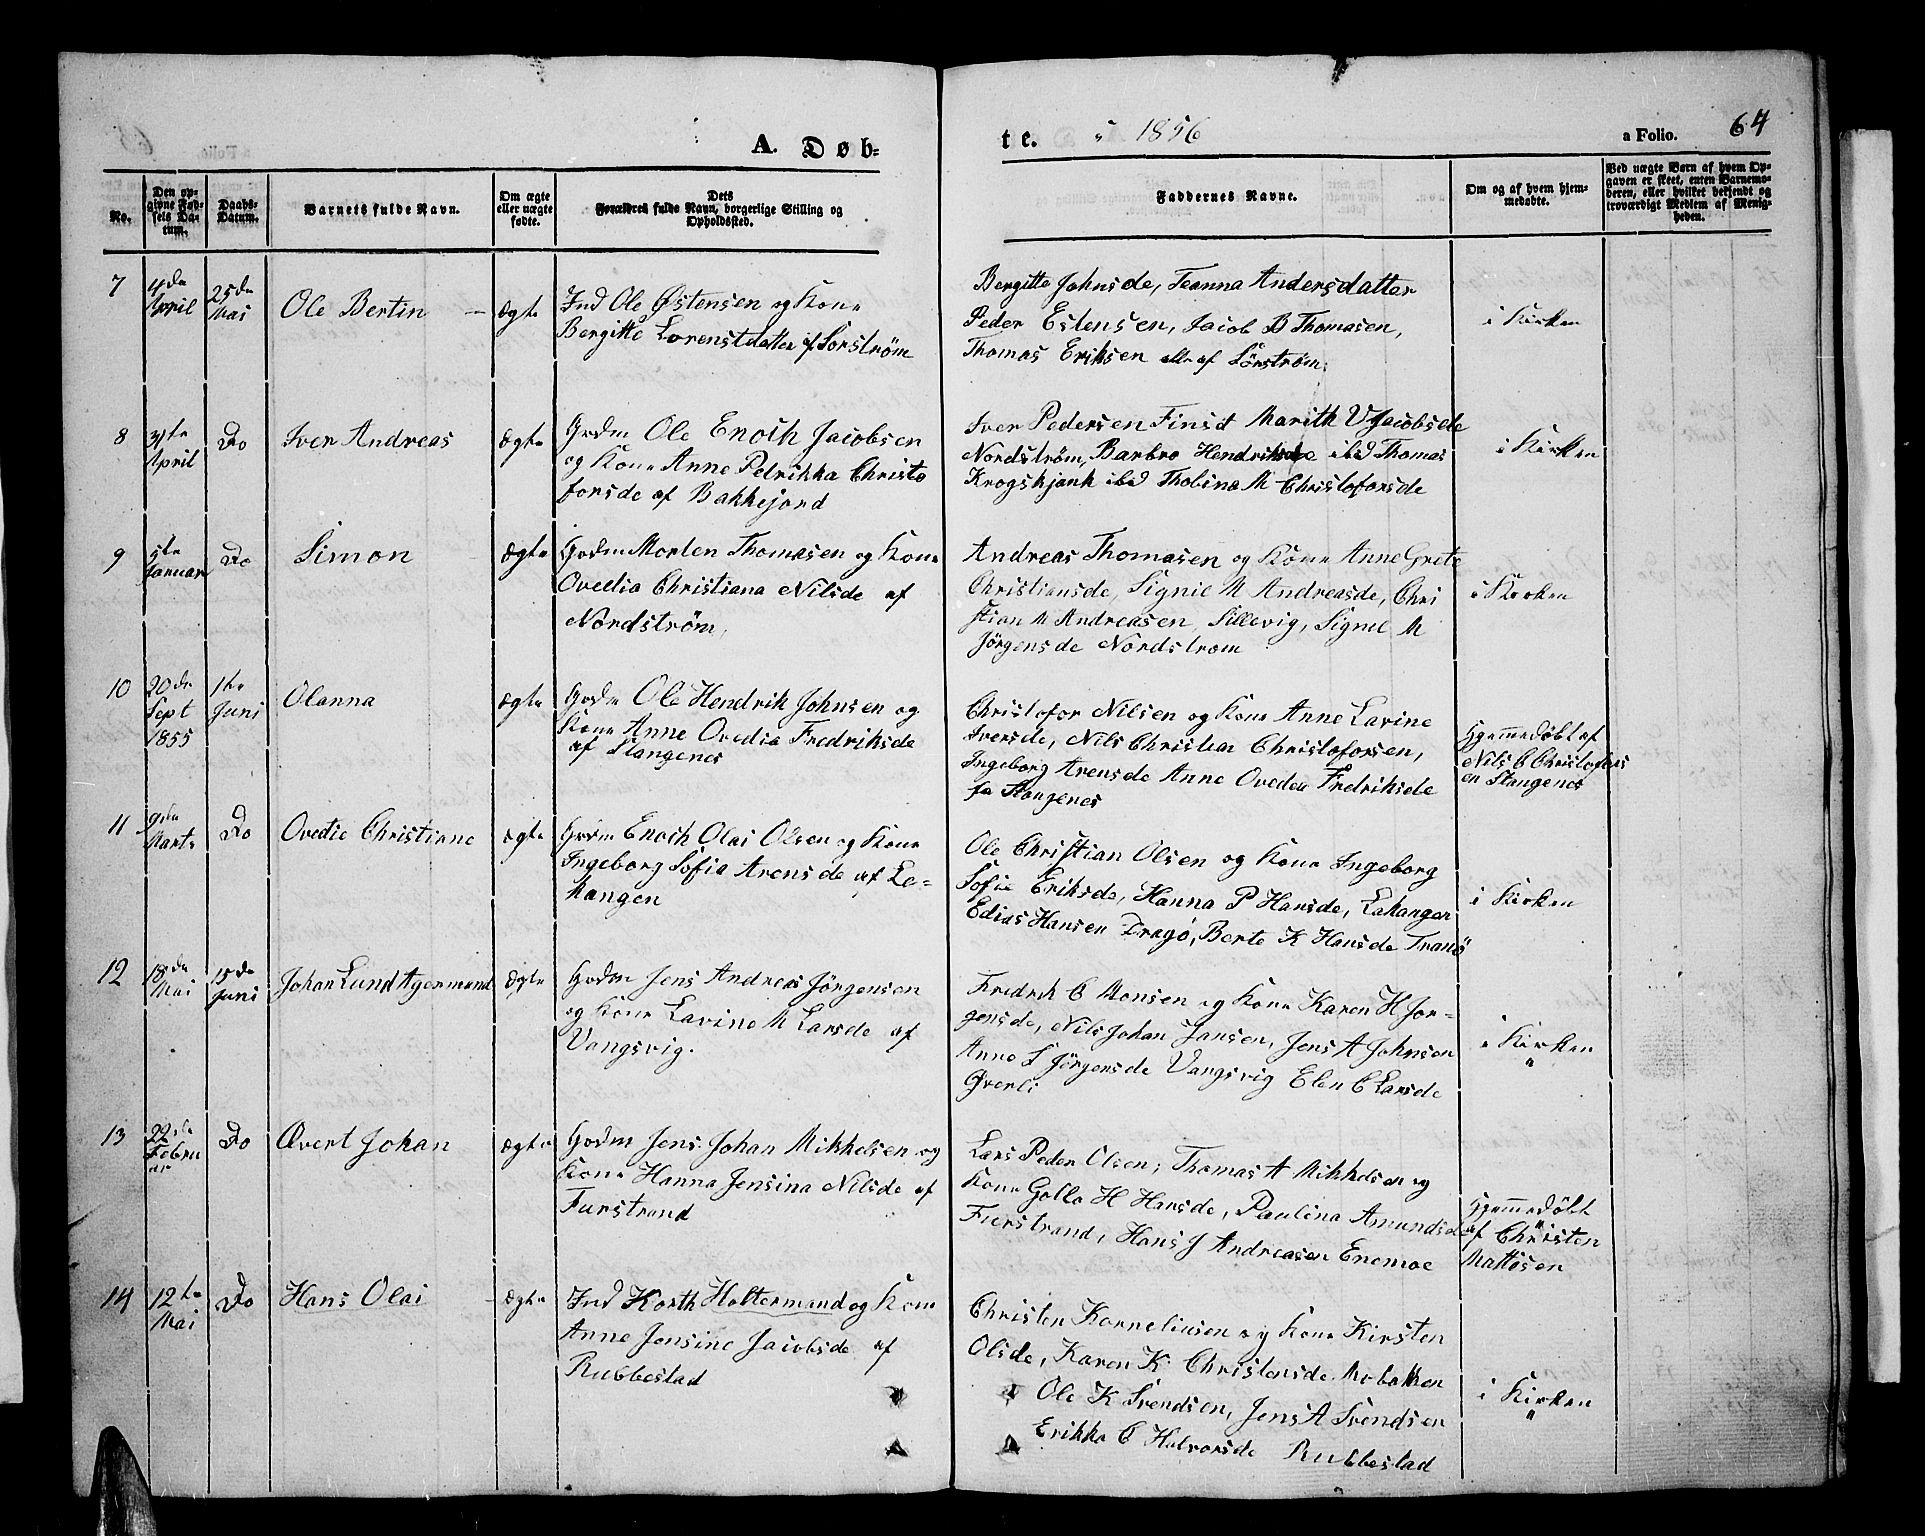 A. Døb-
te. i 1856
a Folio. 64
No.
Den op-
givne Fød-
sels Da-
tum.
Daabs-
Datum.
Barnets fulde Navn.
Om ægte
eller uægte
fødte.
Dets
Forældres fulde Navn, borgerlige Stilling og
Opholdssted.
Faddernes Navne.
Om og af hvem hjem-
medøbte.
Ved uægte Børn af hvem Op-
gaven er skeet, enten Barnemo-
deren, eller hvilket bekjendt og
troværdigt Medlem af Menig-
heden.
7
4de
April
25de
Mai
Ole Bertin
Ægte
Ind Ole Østensen og Kone
Bergitte Lorenstdatter af Sorstrøm
Bergitte Johnsde, Teanna Andersdatter
Peder Estensen, Jacob B Thomasen,
Thomas Eriksen alle af Sörstrøm
i Kirken
8
April
Do
Iver Andreas
Ægte
Grdm Ole Enoch Jacobsen
og Kone Anne Pedrikka Christo
forsde af Bakkejord
Iver Pedersen Finsd Marith V Jacobsde
Nordstrøm, Barbro Hendriksde ibd Thomas
Krogskjank ibd Thobina M Christoforsde
i Kirken
9
5te
Januar
Do
Simon
Ægte
Grdm Morten Thomasen og Kone
Ovedia Christiana Nilsde af
Nordstrøm,
Andreas Thomasen og Kone Anne Grete
Christiansde, Signil M Andreasde, Chri
stian M Andreasen Sillevig, Signil M
Jörgensde Nordstrom
i Kirken
10
20de
Sept
1855
1te
Juni
Olanna
Ægte
Grdm Ole Hendrik Johnsen og
Kone Anne Ovedia Fredriksde
af Stangenes
Christofor Nilsen og Kone Anne Lavine
Iversde, Nils Christian Christoforsen,
Ingeborg Arensde Anne Ovedea Fredriksde
fa Stangenes
Hjemmedøbt af
Nils C Christofors
en Stangenes
11
9de
Marts
Do
Ovedie Christiane
Ægte
Grdm Enoch Olai Olsen og Kone
Ingeborg Sofia Arensde af La-
kangen
Ole Christian Olsen og Kone Ingeborg
Sofie Eriksde, Hanna P Hansde, Lakangen
Edias Hansen Dragö, Berte K Hansde Tranö
i Kirken
12
18de
Mai
15de
Juni
Johan Lund Agermund
Ægte
Grdm Jens Andreas Jörgensen
og Kone Lavine M Larsde af
Vangsvig.
Fredrik C Monsen og Kone Karen H Jor-
gensde, Nils Johan Jansen, Jens A Johnsen
Anne S Jörgensde Vangsvig Elen C Larsde
Øverli
i Kirken
13
22de
Febru
ar
Do
Ævert Johan
Ægte
Grdm Jens Johan Mikkelsen og
Kone Hanna Jensina Nilsde af
Furstrand
Lars Peder Olsen, Thomas A Mikkelsen og
Kone Golla H Hansde, Paulina Amundsde
Fuerstrand, Hans J Andreasen Enemoe
Hjemmedøbt
af Christen
Mattisen
14
12te
Mai
Do
Hans Olai
Ægte
Ind Korth Holtermand og Kone
Anne Jensine Jacobsde af
Rubbestad
Christen Korneliusen og Kone Kirsten
Olsde, Karen K. Christensde Mobakken
Ole K Svendsen, Jens A Svendsen
Erikka C Halvorsde Rubbestad
i Kirken